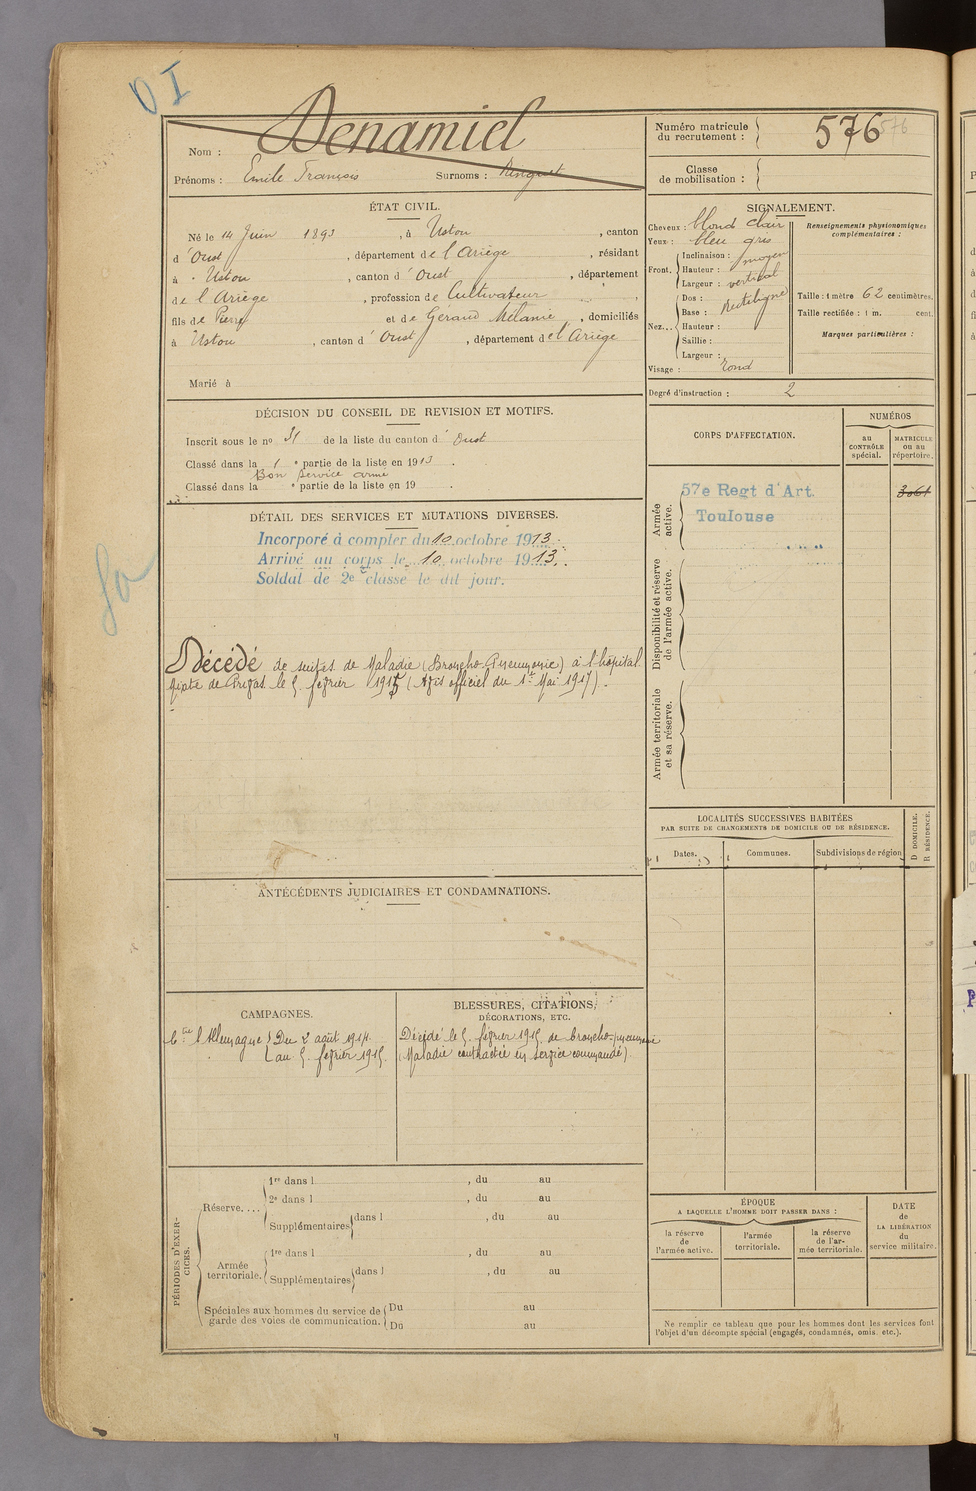 OI
Nom : Denamiel
Prénoms : Emile François Surnoms :
Numéro matricule
du recrutement : 576 576
Classe
de mobilisation :
ÉTAT CIVIL.
Né le 14 Juin 1893, à Ustou, canton
d'Oust, département de l'Ariège, résidant
à Ustou, canton d'Oust, département
de l'Ariège, profession de Cultivateur,
fils de Pierre et de Géraud Mélanie, domiciliés
à Ustou, canton d'Oust, département de l'Ariège
Marié à
SIGNALEMENT.
Cheveux : blond clair
Yeux : bleu gris
Front. Inclinaison : moyen
Hauteur :
Largeur : vertical
Nez... Dos : Rectiligne
Base :
Hauteur :
Saillie :
Largeur :
Visage : rond
Renseignements physionomiques
complémentaires :
Taille : 1 mètre 62 centimètres.
Taille rectifiée : 1 m. cent.
Marques particulières :
Degré d'instruction : 2
DÉCISION DU CONSEIL DE REVISION ET MOTIFS.
Inscrit sous le no 31 de la liste du canton d'Oust
Classé dans la 1e partie de la liste en 1913.
Bon service armé
Classé dans la e partie de la liste en 19 .
DÉTAIL DES SERVICES ET MUTATIONS DIVERSES.
Incorporé à compter du 10 octobre 1913.
Arrivé au corps le 10 octobre 1913.
Soldat de 2e classe le dit jour.
Décédé de suites de Maladie (Broncho-Pneumonie) à l'hôpital
mixte de Privas le 5 février 1915 (Avis officiel du 1er Mai 1917).
CORPS D'AFFECTATION.
NUMÉROS
au
CONTRÔLE
spécial.
MATRICULE
ou au
répertoire.
Armée
active.
57e Regt d'Art.
Toulouse
3061
Disponibilité et réserve
de l'armée active.
Armée territoriale
et sa réserve.
LOCALITÉS SUCCESSIVES HABITÉES
PAR SUITE DE CHANGEMENTS DE DOMICILE OU DE RÉSIDENCE.
Dates. Communes. Subdivisions de région
D DOMICILE.
R RÉSIDENCE.
ANTÉCÉDENTS JUDICIAIRES ET CONDAMNATIONS.
CAMPAGNES.
Ctre l'Allemagne Du 2 août 1914
au 5 février 1915.
BLESSURES, CITATIONS,
DÉCORATIONS, ETC.
Décédé le 5 février 1915 de broncho-pneumonie
(Maladie contractée en service commandé).
PÉRIODES D'EXER-
CICES.
Réserve.... 1re dans l , du au
2e dans l , du au
Supplémentaires dans l , du au
Armée
territoriale. 1re dans l , du au
Supplémentaires dans l , du au
Spéciales aux hommes du service de Du au
garde des voies de communication. Du au
ÉPOQUE
A LAQUELLE L'HOMME DOIT PASSER DANS :
la réserve
de
l'armée active.
l'armée
territoriale.
la réserve
de l'ar-
mée territoriale.
DATE
de
LA LIBÉRATION
du
service militaire.
Ne remplir ce tableau que pour les hommes dont les services font
l'objet d'un décompte spécial (engagés, condamnés, omis, etc.).